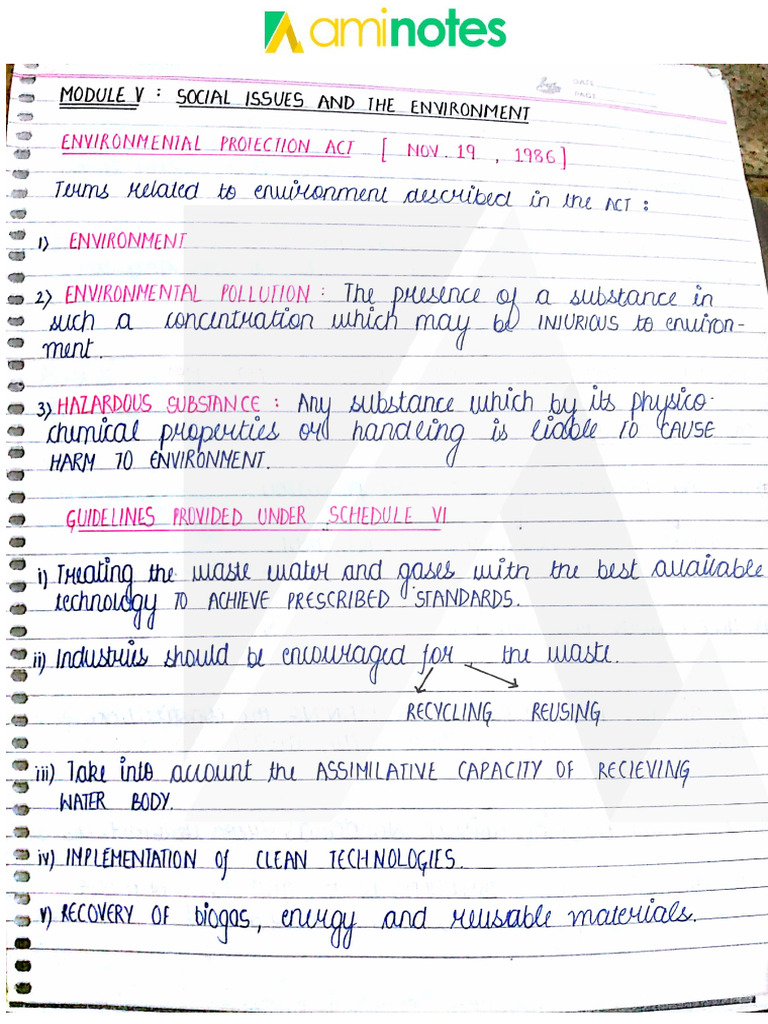 aminotes
DATE
PAGE
MODULE V : SOCIAL ISSUES AND THE ENVIRONMENT
ENVIRONMENTAL PROTECTION ACT [ NOV. 19 , 1986]
Terms related to environment described in the ACT :
1) ENVIRONMENT
2) ENVIRONMENTAL POLLUTION : The presence of a substance in
such a concentration which may be INJURIOUS to environ-
ment.
3) HAZARDOUS SUBSTANCE : Any substance which by its physico-
chemical properties or handling is liable TO CAUSE
HARM TO ENVIRONMENT.
GUIDELINES PROVIDED UNDER SCHEDULE VI
i) Treating the waste water and gases with the best available
technology TO ACHIEVE PRESCRIBED STANDARDS.
ii) Industries should be encouraged for the waste.
RECYCLING REUSING
iii) Take into account the ASSIMILATIVE CAPACITY OF RECIEVING
WATER BODY.
iv) IMPLEMENTATION of CLEAN TECHNOLOGIES.
v) RECOVERY OF biogas, energy and reusable materials.